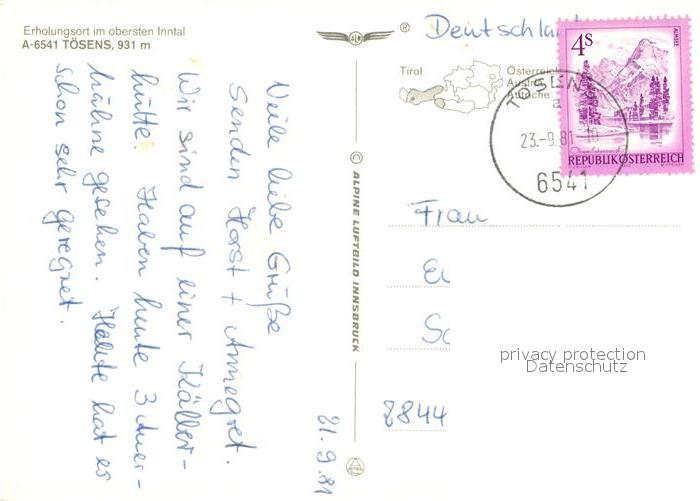 Erholungsort im obersten Inntal
A-6541 TÖSENS, 931 m
Viele liebe Grüße
Senden Horst + Annegret.
Wir sind auf einer Käller-
hütte. Haben heute 3 Auer-
hühne gesehen. Heute hat es
schon sehr geregnet.
21.9.81
® 
© ALPINE LUFTBILD INNSBRUCK
Deutschland
Tirol
Österreich
Austria
Autriche
4S
ALMSEE
REPUBLIK ÖSTERREICH
TÖSENS
a
23.-9.81-18
6541
Frau
8844
privacy protection
Datenschutz